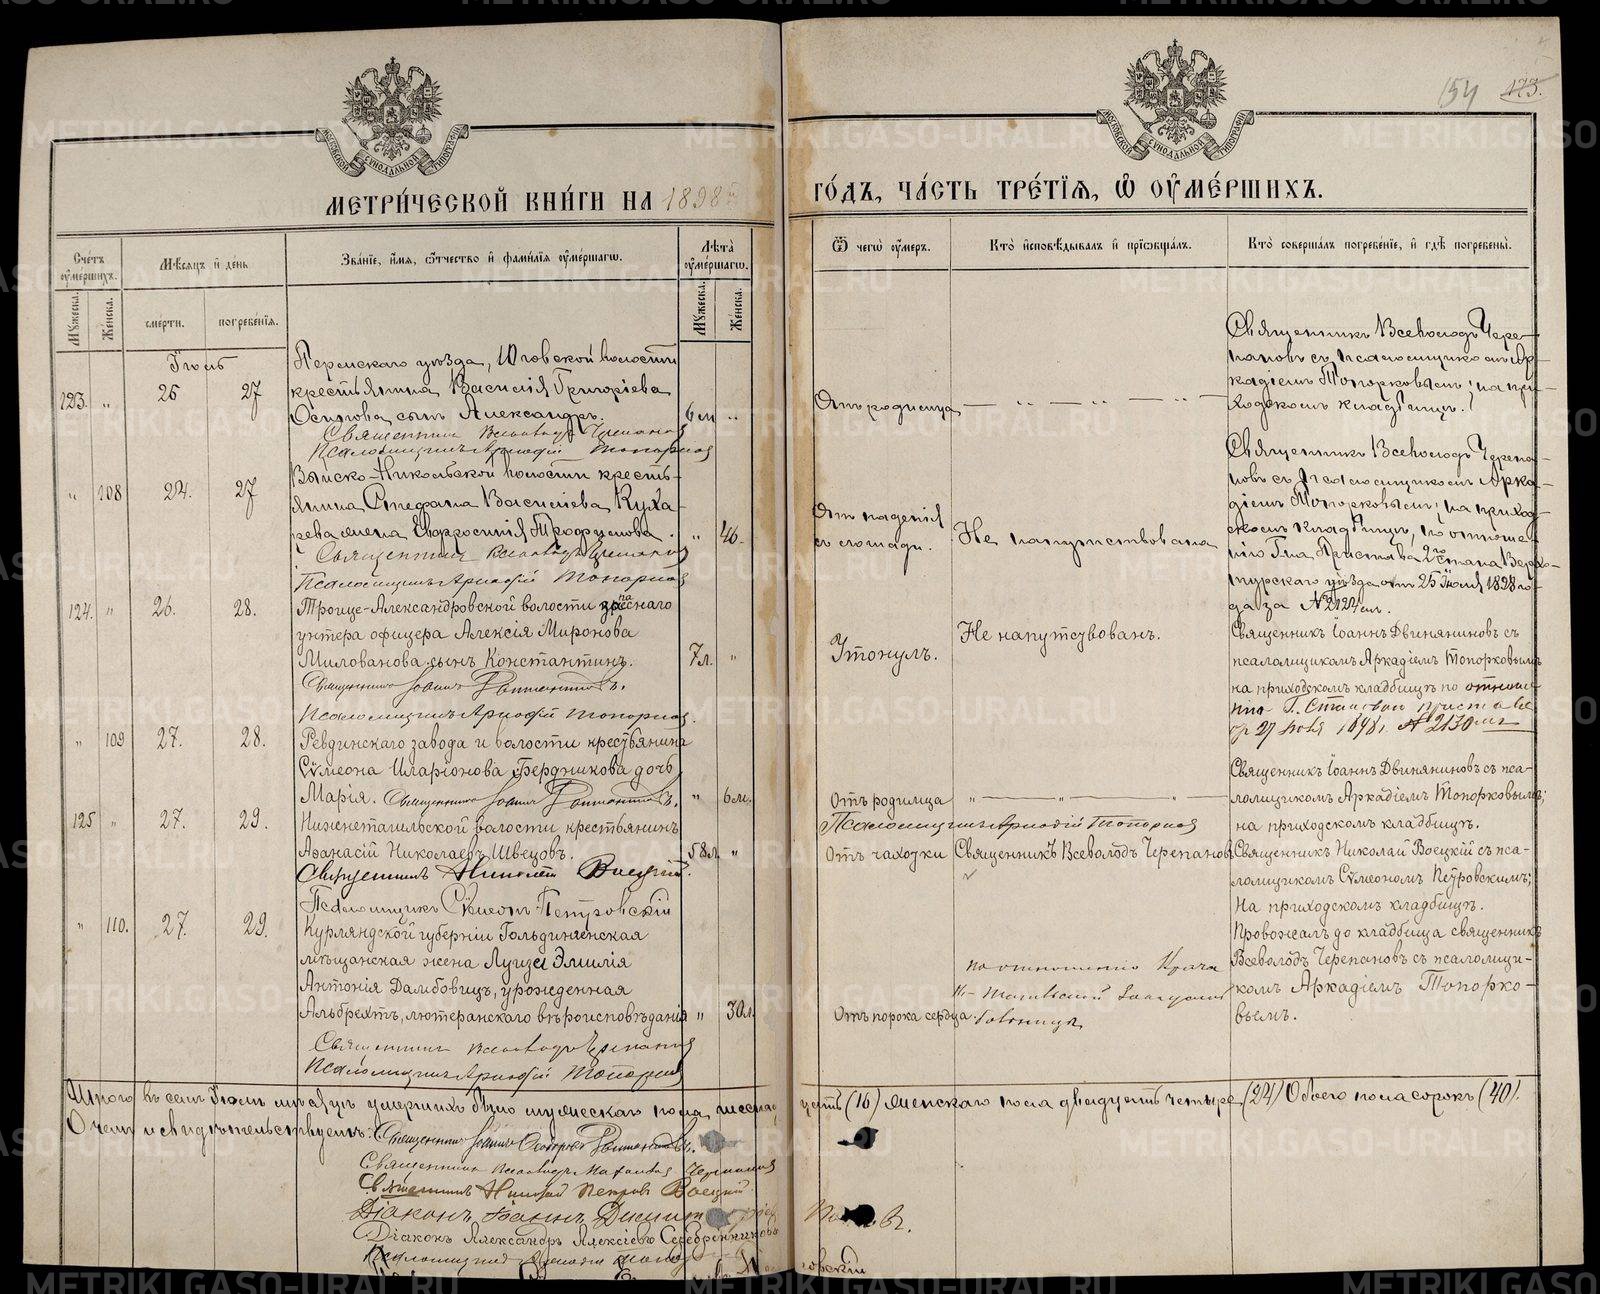 154 173.
МОСКОВСКОЙ СѴНОДАЛЬНОЙ ТИПОГРАФІИ
МОСКОВСКОЙ СѴНОДАЛЬНОЙ ТИПОГРАФІИ
МЕТРИ́ЧЕСКОЙ КНИ́ГИ НА 1898
ГО́ДЪ, ЧА́СТЬ ТРЕ́ТІѦ, Ѡ҆ ОУ҆МЕ́РШИХЪ.
Сче́тъ оу҆ме́ршихъ.
Мꙋ́жеска.
Же́нска.
Мѣ́сѧцъ и҆ де́нь
сме́рти.
погребе́нїѧ.
Зва́нїе, и҆́мѧ, ѻ҆́тчество и҆ фами́лїѧ оу҆ме́ршагѡ.
Лѣ́та оу҆ме́ршагѡ.
Мꙋ́жеска.
Же́нска.
Ѿ чегѡ̀ оу҆́меръ.
Кто̀ и҆сповѣ́дывалъ и҆ прїѡбща́лъ.
Кто̀ соверша́лъ погребе́нїе, и҆ гдѣ̀ погребены̀.
Іюль
123. „ 25 27
Пермскаго уѣзда, Юговской волости
крестьянина Василія Григоріева
Осипова сынъ Александръ. 6 м „
Священникъ Всеволодъ Черепановъ
Псаломщикъ Аркадій Топорковъ
Отъ родимца
Священникъ Всеволодъ Чере-
пановъ съ псаломщикомъ Ар-
кадіемъ Топорковымъ; на при-
ходскомъ кладбищѣ.
„ 108 24. 27
Выйско-Никольской волости кресть-
янина Стефана Василіева Куха-
рева жена Евфросинія Трофимова. „ 46.
Священникъ Всеволодъ Черепановъ
Псаломщикъ Аркадій Топорковъ
Отъ паденія
съ лошади.
Не напутствована
Священникъ Всеволодъ Черепа-
новъ съ псаломщикомъ Арка-
діемъ Топорковымъ; на приход-
скомъ кладбищѣ, по отноше-
нію Г-на Пристава 2го стана Верхо-
турскаго уѣзда отъ 25 Іюля 1898 го-
да за № 2124 съ.
124. „ 26. 28.
Троице-Александровской волости запаснаго
унтера офицера Алексія Миронова
Милованова сынъ Константинъ. 7 л. „
Псаломщикъ Аркадій Топорковъ.
Утонулъ.
Не напутсвованъ.
Священникъ Іоаннъ Двиняниновъ съ
псаломщикомъ Аркадіемъ Топорковымъ
на приходскомъ кладбищѣ по отноше-
нію Г. Становой Пристава
№ 2130
„ 109 27. 28.
Ревдинскаго завода и волости крестьянина
Сѵмеона Иларіонова Бердникова дочь
Марія. „ 6 м.
Отъ родимца
Псаломщикъ Аркадій Топорковъ
Священникъ Іоаннъ Двиняниновъ съ пса-
ломщикомъ Аркадіемъ Топорковымъ;
на приходскомъ кладбищѣ.
125 „ 27. 29.
Нижнетагильской волости крестьянинъ
Аѳанасій Николаевъ Швецовъ. 58 л. „
Священникъ Николай Воецкій.
Псаломщикъ Сѵмеонъ Петровскій
Отъ чахотки
Священникъ Всеволодъ Черепановъ
Священникъ Николай Воецкій съ пса-
ломщикомъ Сѵмеономъ Петровскимъ;
На приходскомъ кладбищѣ.
„ 110. 27. 29.
Курляндской губерніи Гольдингенская
мѣщанская жена Луиза Эмилія
Антонія Дамбовицъ, урожденная
Альбрехтъ, лютеранскаго вѣроисповѣданія „ 30 л.
Священникъ Всеволодъ Черепановъ
Псаломщикъ Аркадій Топорковъ
Отъ порока сердца.
по отношенію Врача
Н-Тагильской Заводской
больницы
Провожалъ до кладбища священникъ
Всеволодъ Черепановъ съ псаломщи-
комъ Аркадіемъ Топорко-
вымъ.
Итого въ семъ Іюлѣ мѣсяцѣ умершихъ было мужескаго пола шестнад
цать (16) женскаго пола двадцать четыре (24) Обоего пола сорокъ (40).
О чемъ и свидѣтельствуемъ:
Священникъ Всеволодъ Черепановъ
Священникъ Николай Петровъ Воецкій
Діаконъ Іоаннъ
Діаконъ Александръ Алексіевъ Серебренниковъ
Псаломщикъ Аркадій
METRIKI.GASO-URAL.RU